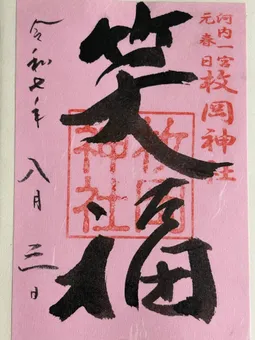 河内一宮
元春日
枚岡神社
笑福
枚岡
神社
令和七年
八月
三日